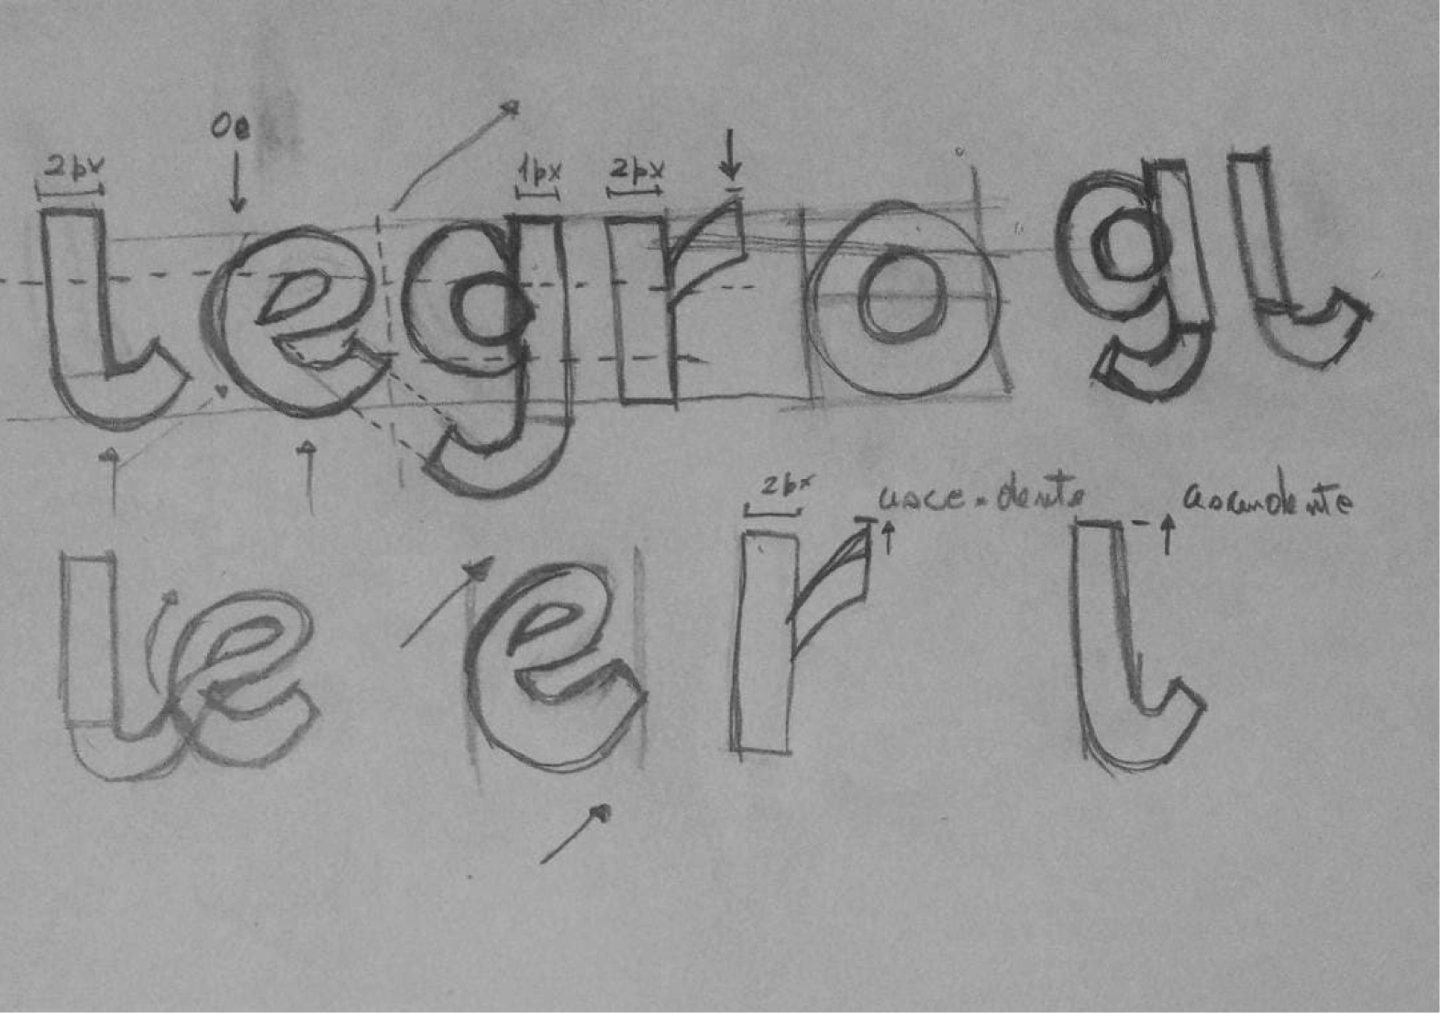 Oe
2px 1px 2px
legro gl
2px ascendente ascendente
le e r l